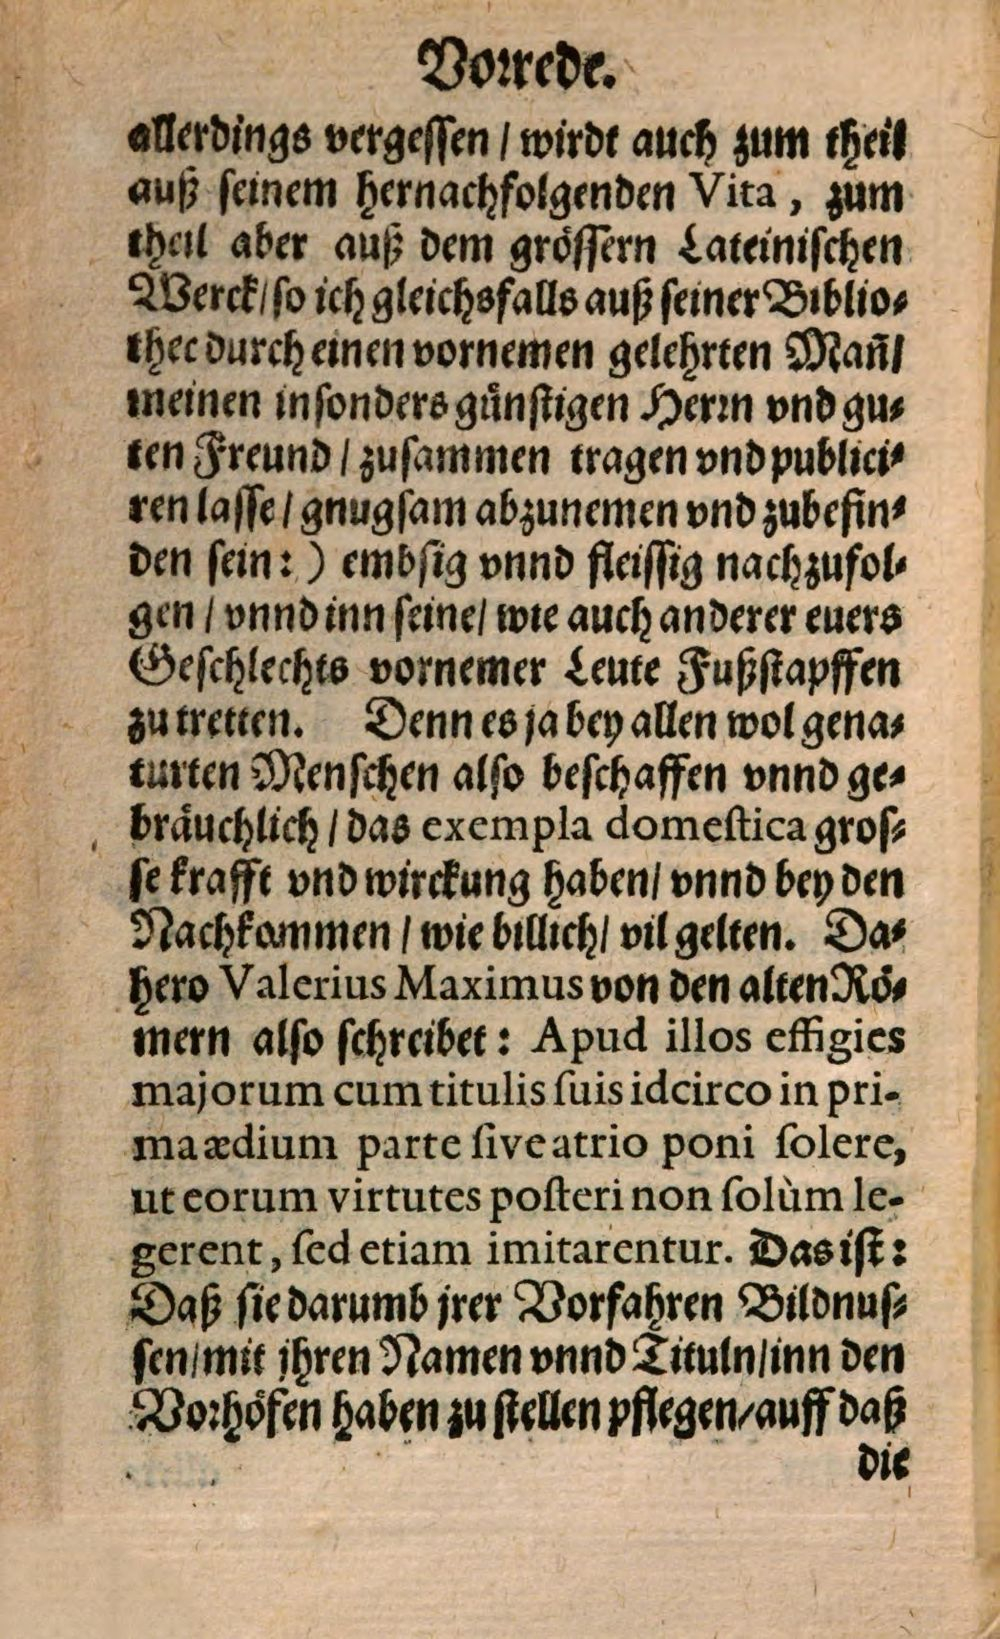 Vorrede.
allerdings vergeſſen / wirdt auch zum theil
auß ſeinem hernachfolgenden Vita, zum
theil aber auß dem gröſſern Lateiniſchen
Werck / ſo ich gleichsfalls auß ſeiner Biblio⸗
thec durch einen vornemen gelehrten Mañ /
meinen inſonders günſtigen Herrn vnd gu⸗
ten Freund / zuſammen tragen vnd publici⸗
ren laſſe / gnugſam abzunemen vnd zubefin⸗
den ſein: ) embſig vnnd fleiſſig nachzufol⸗
gen / vnnd inn ſeine / wie auch anderer euers
Geſchlechts vornemer Leute Fußſtapffen
zu tretten. Denn es ja bey allen wol gena⸗
turten Menſchen alſo beſchaffen vnnd ge⸗
bräuchlich / das exempla domeſtica groſ⸗
ſe krafft vnd wirckung haben / vnnd bey den
Nachkommen / wie billich / vil gelten. Da⸗
hero Valerius Maximus von den alten Rö⸗
mern alſo ſchreibet: Apud illos effigies
majorum cum titulis ſuis idcirco in pri-
ma ædium parte ſive atrio poni ſolere,
ut eorum virtutes poſteri non ſolùm le-
gerent, ſed etiam imitarentur. Das iſt:
Daß ſie darumb jrer Vorfahren Bildnuſ⸗
ſen / mit jhren Namen vnnd Tituln / inn den
Vorhöfen haben zu ſtellen pflegen / auff daß
die